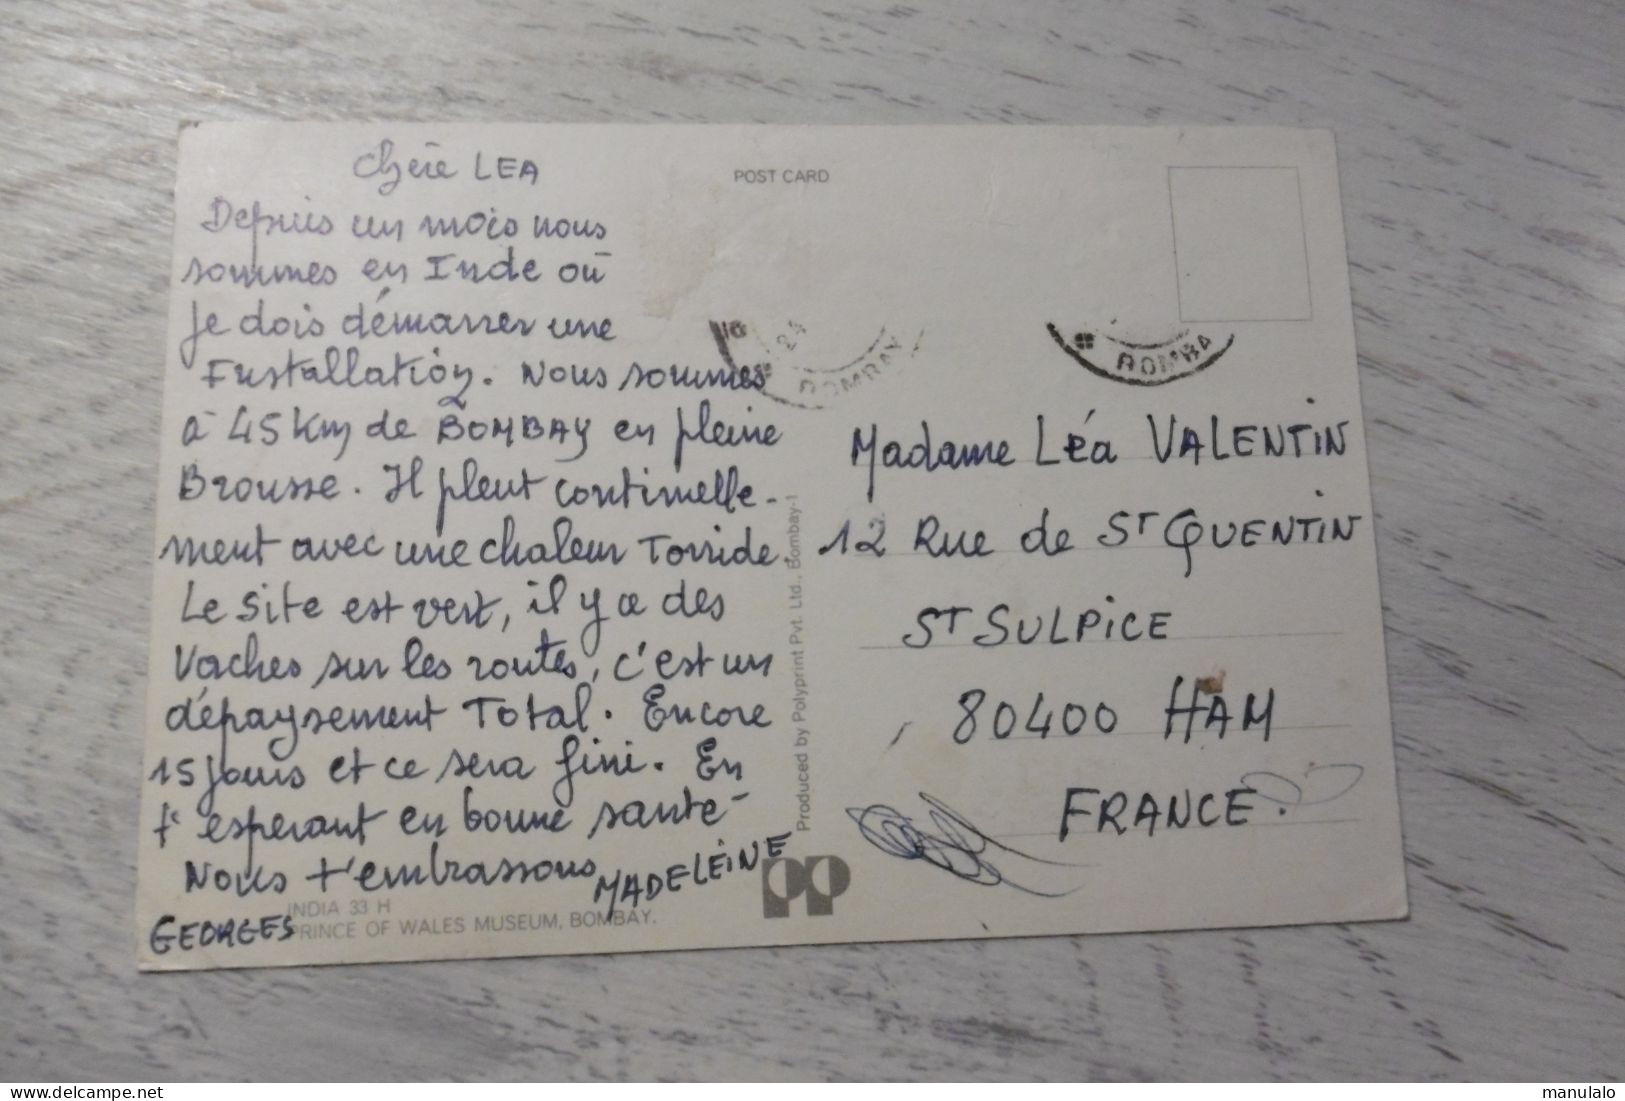 Chère LEA
Depuis un mois nous
sommes en Inde où
je dois démarrer une
Installation. Nous sommes
à 45 Km de BOMBAY en pleine
Brousse. Il pleut continuelle-
ment avec une chaleur Torride.
Le site est vert, il y a des
Vaches sur les routes, c'est un
dépaysement Total. Encore
15 jours et ce sera fini. En
t'esperant en bonne santé
Nous t'embrassons MADELEINE
GEORGES
INDIA 33 H
PRINCE OF WALES MUSEUM, BOMBAY.
Produced by Polyprint Pvt. Ltd., Bombay-1
POST CARD
24
BOMBAY
BOMBA
Madame Léa VALENTIN
12 Rue de ST QUENTIN
ST SULPICE
80400 HAM
FRANCE.
https://www.delcampe.net
manulalo